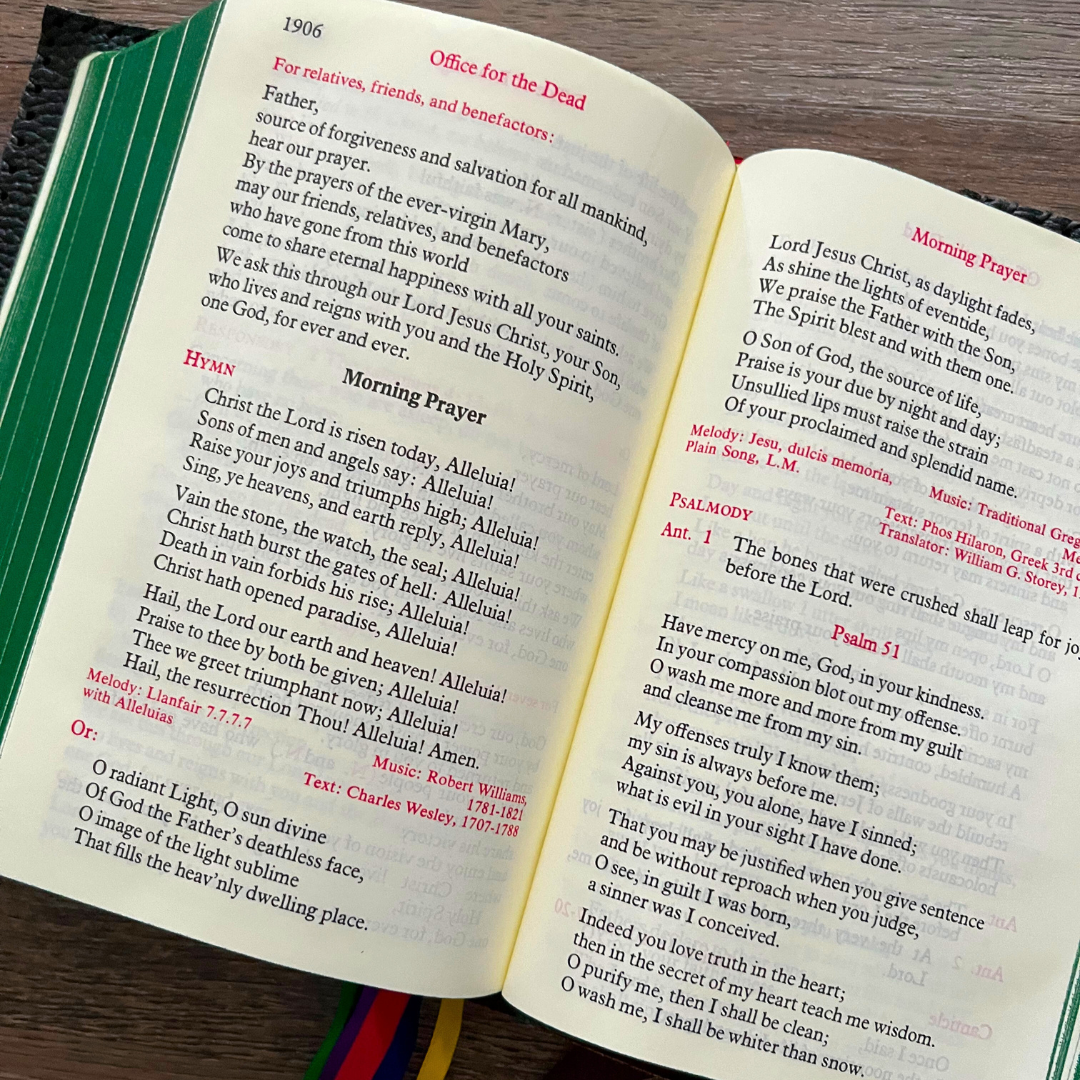 1906
Office for the Dead
For relatives, friends, and benefactors:
Father,
source of forgiveness and salvation for all mankind,
hear our prayer.
By the prayers of the ever-virgin Mary,
may our friends, relatives, and benefactors
who have gone from this world
come to share eternal happiness with all your saints.
We ask this through our Lord Jesus Christ, your Son,
who lives and reigns with you and the Holy Spirit,
one God, for ever and ever.
Morning Prayer
HYMN
Christ the Lord is risen today, Alleluia!
Sons of men and angels say: Alleluia!
Raise your joys and triumphs high; Alleluia!
Sing, ye heavens, and earth reply, Alleluia!
Vain the stone, the watch, the seal; Alleluia!
Christ hath burst the gates of hell: Alleluia!
Death in vain forbids his rise; Alleluia!
Christ hath opened paradise, Alleluia!
Hail, the Lord our earth and heaven! Alleluia!
Praise to thee by both be given; Alleluia!
Thee we greet triumphant now; Alleluia!
Hail, the resurrection Thou! Alleluia! Amen.
Melody: Llanfair 7.7.7.7
with Alleluias
Music: Robert Williams,
1781-1821
Text: Charles Wesley, 1707-1788
Or:
O radiant Light, O sun divine
Of God the Father's deathless face,
O image of the light sublime
That fills the heav'nly dwelling place.
Morning Prayer
Lord Jesus Christ, as daylight fades,
As shine the lights of eventide,
We praise the Father with the Son,
The Spirit blest and with them one.
O Son of God, the source of life,
Praise is your due by night and day;
Unsullied lips must raise the strain
Of your proclaimed and splendid name.
Melody: Jesu, dulcis memoria,
Plain Song, L.M.
Music: Traditional Greg
Me
Text: Phos Hilaron, Greek 3rd c
Translator: William G. Storey, 1
PSALMODY
Ant. 1 The bones that were crushed shall leap for jo
before the Lord.
Psalm 51
Have mercy on me, God, in your kindness.
In your compassion blot out my offense.
O wash me more and more from my guilt
and cleanse me from my sin.
My offenses truly I know them;
my sin is always before me.
Against you, you alone, have I sinned;
what is evil in your sight I have done.
That you may be justified when you give sentence
and be without reproach when you judge,
O see, in guilt I was born,
a sinner was I conceived.
Indeed you love truth in the heart;
then in the secret of my heart teach me wisdom.
O purify me, then I shall be clean;
O wash me, I shall be whiter than snow.